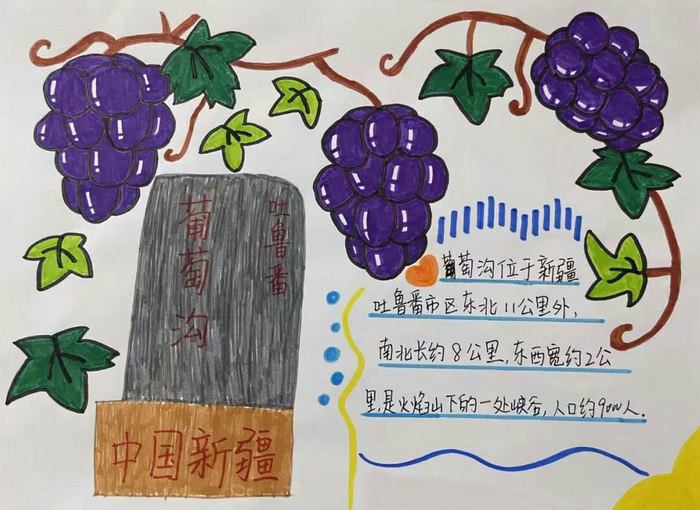 吐鲁番
葡萄沟
中国新疆
葡萄沟位于新疆
吐鲁番市区东北11公里外,
南北长约8公里,东西宽约2公
里,是火焰山下的一处峡谷,人口约9000人.